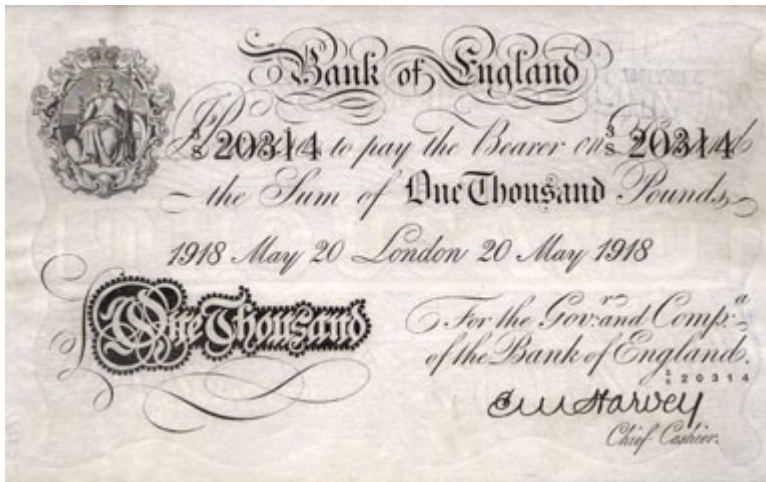 Bank of England
3/S 20314 to pay the Bearer on 3/S 20314
the Sum of One Thousand Pounds,
1918 May 20 London 20 May 1918
One Thousand
For the Gov.r and Comp.a
of the Bank of England.
3/S 20314
E M Harvey
Chief Cashier.